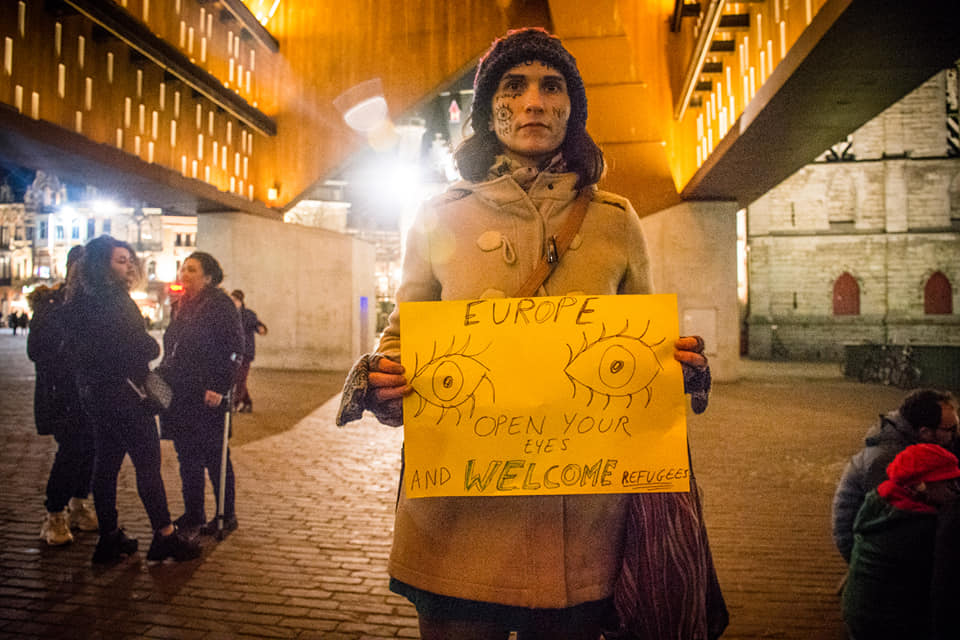 EUROPE
OPEN YOUR
EYES
AND WELCOME REFUGEES